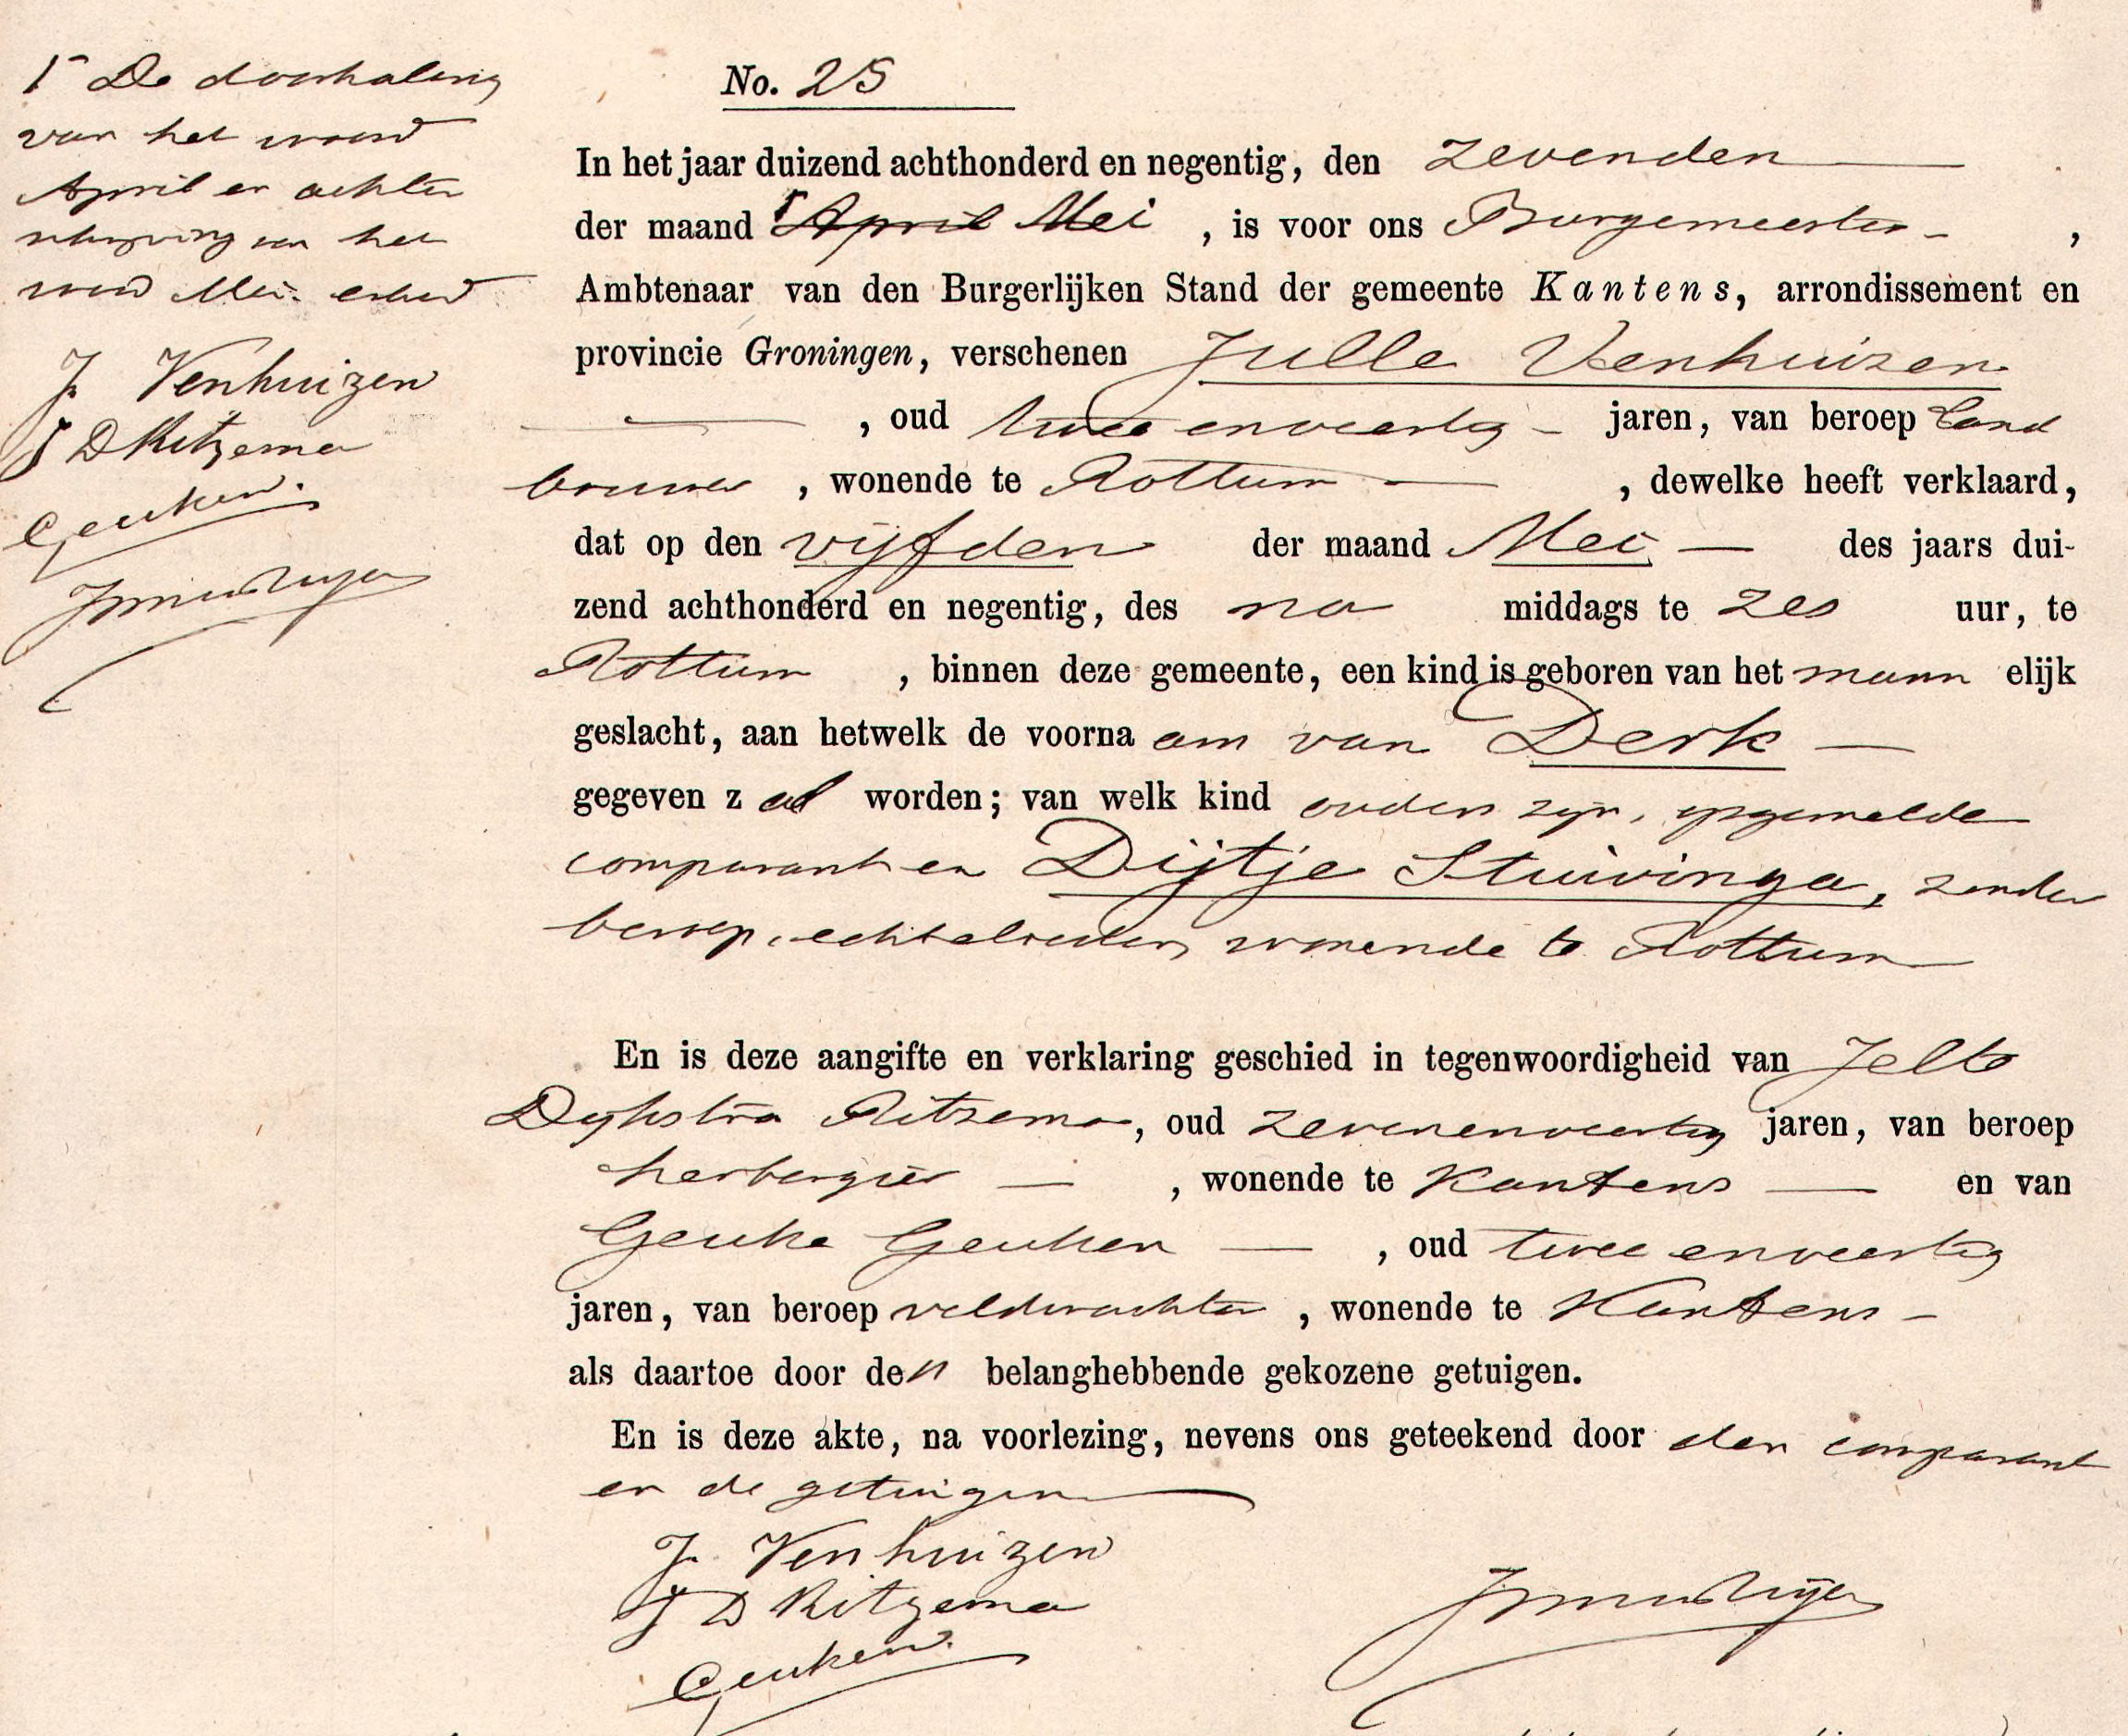 1 De doorhaling
van het woord
April en achter
schrijving van het
woord Mei erkend
J. Venhuizen
J D Ritzema
Geuken.
No. 25
In het jaar duizend achthonderd en negentig, den zevenden
der maand April Mei, is voor ons Burgemeester,
Ambtenaar van den Burgerlijken Stand der gemeente Kantens, arrondissement en
provincie Groningen, verschenen Julle Venhuizen
, oud twee en veertig jaren, van beroep Land
bouwer, wonende te Rottum, dewelke heeft verklaard,
dat op den vijfden der maand Mei des jaars dui-
zend achthonderd en negentig, des na middags te zes uur, te
Rottum, binnen deze gemeente, een kind is geboren van het mann elijk
geslacht, aan hetwelk de voorna am van Derk
gegeven z al worden; van welk kind ouders zijn, opgemelde
comparant en Dijtje Stuivinga, zonder
beroep, echtelieden, wonende te Rottum
En is deze aangifte en verklaring geschied in tegenwoordigheid van Jelto
Dijkstra Ritzema, oud zevenenveertig jaren, van beroep
herbergier, wonende te Kantens en van
Geuke Geuken, oud twee en veertig
jaren, van beroep veldwachter, wonende te Kantens
als daartoe door den belanghebbende gekozene getuigen.
En is deze akte, na voorlezing, nevens ons geteekend door den comparant
en de getuigen
J. Venhuizen
J D Ritzema
Geuken.